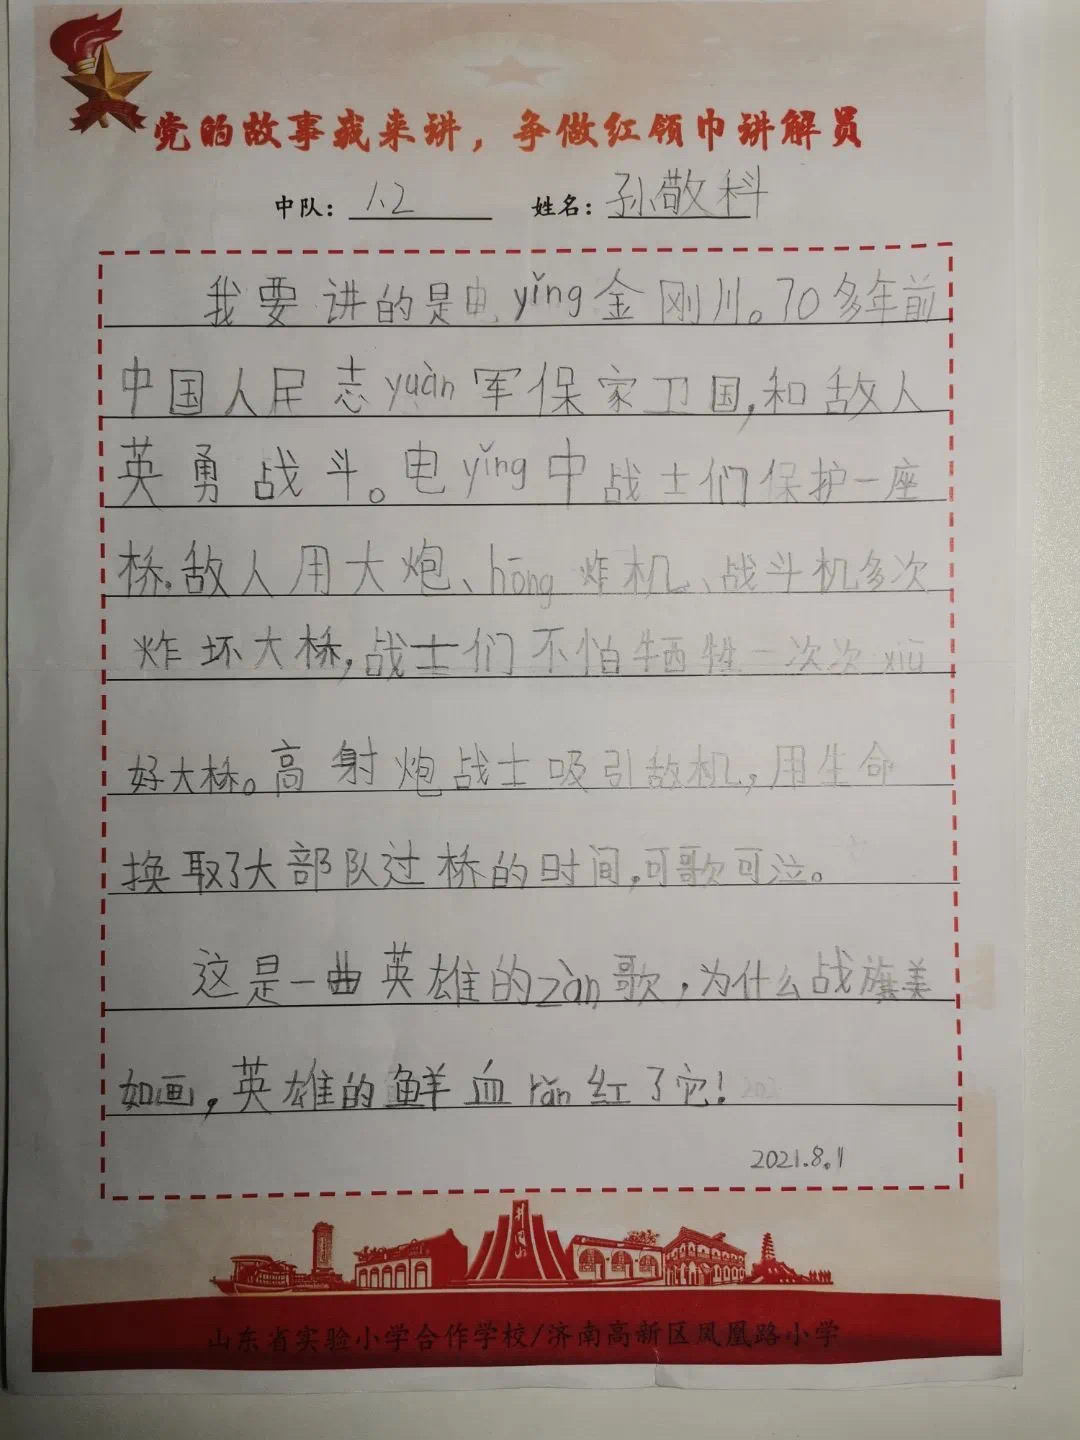 党的故事我来讲，争做红领巾讲解员
中队：1.2 姓名：孙敬科
我要讲的是电yǐng金刚川。70多年前
中国人民志yuàn军保家卫国，和敌人
英勇战斗。电yǐng中战士们保护一座
桥.敌人用大炮、hōng炸机、战斗机多次
炸坏大桥，战士们不怕牺牲一次次xiū
好大桥。高射炮战士吸引敌机，用生命
换取了大部队过桥的时间，可歌可泣。
这是一曲英雄的zàn歌，为什么战旗美
如画，英雄的鲜血rǎn红了它！
2021.8.1
井冈山
山东省实验小学合作学校/济南高新区凤凰路小学